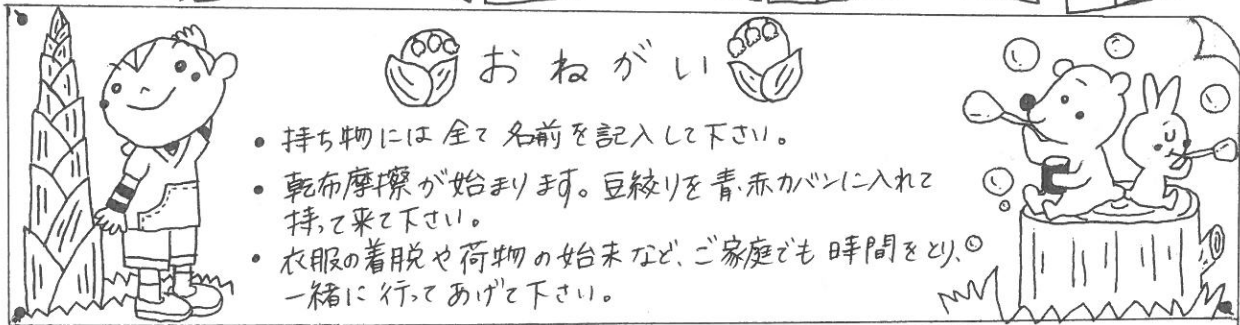 おねがい
• 持ち物には全て名前を記入して下さい。
• 乾布摩擦が始まります。豆絞りを青・赤カバンに入れて
持って来て下さい。
• 衣服の着脱や荷物の始末など、ご家庭でも時間をとり、
一緒に行ってあげて下さい。